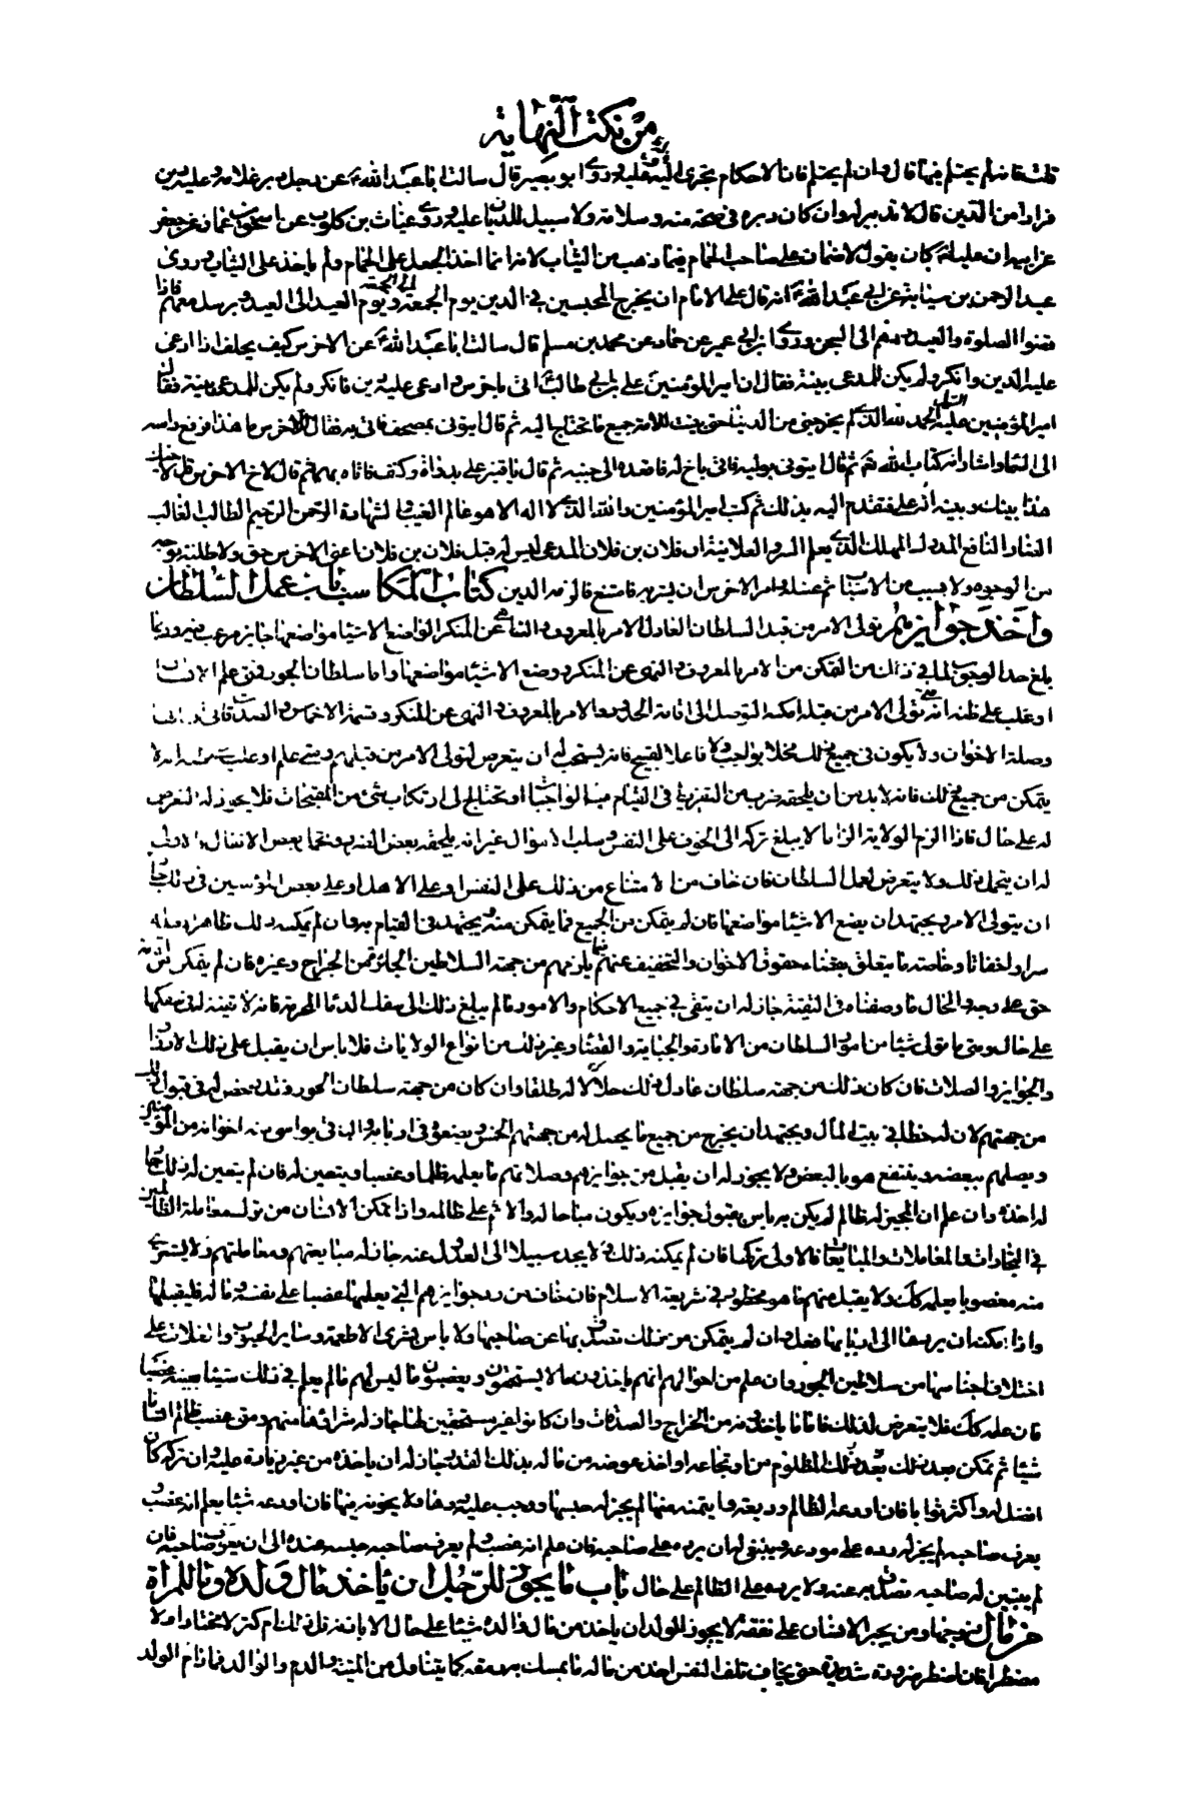 من نكت النهاية
قلت فان لم يحتلم فيها قال وان لم يحتلم فان الاحكام تجري عليه وروى ابو بصير قال سالت ابا عبد الله ع عن رجل دبر غلامه وعليه دين
فرارا من الدين قال لا تدبير له وان كان دبره في صحة منه وسلامة ولا سبيل للديان عليه وروى غياث بن كلوب عن اسحق بن عمار عن جعفر
عن ابيه ان عليا ع كان يقول لا ضمان على صاحب الحمام فيما ذهب من الثياب لانه انما اخذ الجعل على الحمام ولم ياخذ على الثياب وروى
عبد الرحمن بن سيابة عن ابي عبد الله ع انه قال على الامام ان يخرج المحبسين في الدين يوم الجمعة الى الجمعة ويوم العيد الى العيد ويرسل معهم فاذا
قضوا الصلوة والعيد ردهم الى السجن وروى ابن ابي عمير عن حماد عن محمد بن مسلم قال سالت ابا عبد الله ع عن الاخرس كيف يحلف اذا ادعى
عليه الدين وانكر ولم يكن للمدعي بينة فقال ان امير المؤمنين علي بن ابي طالب ع اتي باخرس وادعى عليه دين فانكر ولم يكن للمدعي بينة فقال
امير المؤمنين عليه السلم الحمد لله الذي لم يخرجني من الدنيا حتى بينت للامة جميع ما تحتاج اليه ثم قال ايتوني بمصحف فاتي به فقال للاخرس ما هذا فرفع راسه
الى السماء واشار انه كتاب الله ثم قال ايتوني بوليه فاتي باخ له فاقعده الى جنبه ثم قال يا قنبر علي بدواة وكتف فاتاه بهما ثم قال لاخ الاخرس قل لاخيك
هذا بينك وبينه انه علي فتقدم اليه بذلك ثم كتب امير المؤمنين والله الذي لا اله الا هو عالم الغيب والشهادة الرحمن الرحيم الطالب الغالب
الضار النافع المدرك المهلك الذي يعلم السر والعلانية ان فلان بن فلان المدعي ليس له قبل فلان بن فلان اعني الاخرس حق ولا طلبة بوجه
من الوجوه ولا بسبب من الاسباب ثم غسله وامر الاخرس ان يشربه فامتنع فالزمه الدين كتاب المكاسب باب عمل السلطان
واخذ جوايزهم تولي الامر من قبل السلطان العادل الامر بالمعروف والناهي عن المنكر الواضع الاشيا مواضعها جايز مرغب فيه وربما
بلغ حد الوجوب لما في ذلك من التمكن من الامر بالمعروف والنهي عن المنكر ووضع الاشيا مواضعها واما سلطان الجور فمتى علم الانسان
او غلب على ظنه انه متى تولى الامر من قبله امكنه التوصل الى اقامة الحدود والامر بالمعروف والنهي عن المنكر وقسمة الاخماس والصدقات في اربابها
وصلة الاخوان ولا يكون في جميع ذلك مخلا بواجب ولا فاعلا لقبيح فانه يستحب له ان يتعرض لتولي الامر من قبلهم ومتى علم او غلب على ظنه انه لا
يتمكن من جميع ذلك فانه لا بد من ان يلحقه ضرب من التفريط في القيام بهذه الواجبات او تحتاج الى ارتكاب شيء من المقبحات فلا يجوز له التعرض
له على حال فاذا الزم الولاية الزاما لا يبلغ تركه الى الخوف على النفس وسلب الاموال غير انه يلحقه بعض الضرر وتحمل بعض الاثقال فالاولى
له ان يتحمل ذلك ولا يتعرض لعمل السلطان فان خاف من الامتناع من ذلك على النفس او على الاهل او على بعض المؤمنين في ذلك جاز
ان يتولى الامر ويجتهد ان يضع الاشيا مواضعها فان لم يتمكن من الجميع فما يتمكن منه يجتهد في القيام به وان لم يمكنه ذلك ظاهرا فعله
سرا واخفاتا وخاصة ما يتعلق بقضاء حقوق الاخوان والتخفيف عنهم فيما يلزمهم من جهة السلاطين الجائرة من الخراج وغيره فان لم يتمكن من اقامة
حق على وجه والحال ما وصفناه في التقية جاز له ان يتقي في جميع الاحكام والامور ما لم يبلغ ذلك الى سفك الدما المحرمة فانه لا تقية له في سفكها
على حال ومتى ما تولى شيئا من امور السلطان من الامارة والجباية والقضاء وغير ذلك من انواع الولايات فلا باس ان يقبل على ذلك الارزاق
والجوايز والصلات فان كان ذلك من جهة سلطان عادل كان ذلك حلالا له طلقا وان كان من جهة سلطان الجور فقد رخص له في قبول ذلك
من جهتهم لان له حظا في بيت المال ويجتهد ان يخرج من جميع ما يحصل له من جهتهم الخمس ويضعه في اربابه والباقي يواسي منه اخوانه من المؤمنين
ويصلهم ببعضه وينتفع هو بالبعض ولا يجوز له ان يقبل من جوايزهم وصلاتهم ما يعلمه ظلما وغصبا ويتعين له فان لم يتعين له ذلك جاز
له اخذه وان علم ان المجيز له ظالم لم يكن به باس بقبول جوايزه ويكون مباحا له والاثم على ظالمه واذا تمكن الانسان من ترك معاملة الظالمين
في التجارات والمعاملات والمبايعات فالاولى تركها فان لم يمكنه ذلك ولا يجد سبيلا الى العدول عنه جاز له مبايعتهم ومعاملتهم ولا يشتري
منه مغصوبا يعلمه كذلك ولا يقبل منهم ما هو محظور في شريعة الاسلام فان خاف من رد جوايزهم التي يعلمها غصبا على نفسه وماله فليقبلها
واذا امكنه ان يردها الى اربابها فعل وان لم يتمكن من ذلك تصدق بها عن صاحبها ولا باس بشرى الاطعمة وساير الحبوب والغلات على
اختلاف اجناسها من سلاطين الجور وان علم من احوالهم انهم ياخذون ما لا يستحقون ويغصبون ما ليس لهم ما لم يعلم في ذلك شيئا بعينه غصبا
فان علمه كذلك فلا يتعرض لذلك فاما ما ياخذونه من الخراج والصدقات وان كانوا غير مستحقين لها جاز له شراؤها منهم ومتى غصب ظالم انسانا
شيئا ثم تمكن بعد ذلك المظلوم من ارتجاعه او اخذ عوضه من ماله بذلك القدر جاز له ان ياخذه من غير زيادة عليه وان تركه كان
افضل له واكثر ثوابا فان اودعه الظالم وديعة وما يتمنه عنها لم يجز له حبسها ووجب عليه ردها ولا يخونه فيها فان اودعه شيئا يعلم انه غصب و
يعرف صاحبه لم يجز له رده على مودعه وينبغي له ان يرده على صاحبه فان علم انه غصب ولم يعرف صاحبه حبسه عنده الى ان يعرف صاحبه فان
لم يتبين له صاحبه تصدق به عنه ولا يرده على الظالم على حال باب ما يجوز للرجل ان ياخذ من مال ولده وما للمراة
من مال زوجها ومن يجبر الانسان على نفقته لا يجوز للولد ان ياخذ من مال والده شيئا على حال الا باذنه قل ذلك ام كثر لا مختارا ولا
مضطرا فان اضطر ضرورة شديدة حتى يخاف تلف النفس اخذ من ماله ما يمسك به رمقه كما يتناول من الميتة والدم والوالد فما دام الولد